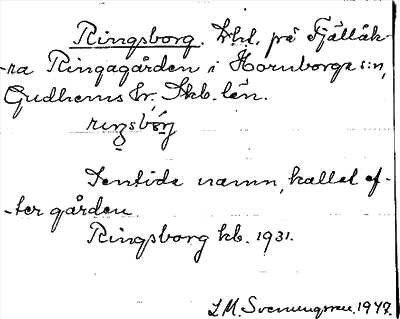 Ringsborg. Lhl. på Fjällåk-
ra Ringagården i Hornborga s:n,
Gudhems hr. Skb. län.
Sentida namn, kallat ef-
ter gården
Ringsborg kb. 1931.
L.M. Svenungsson. 1947.